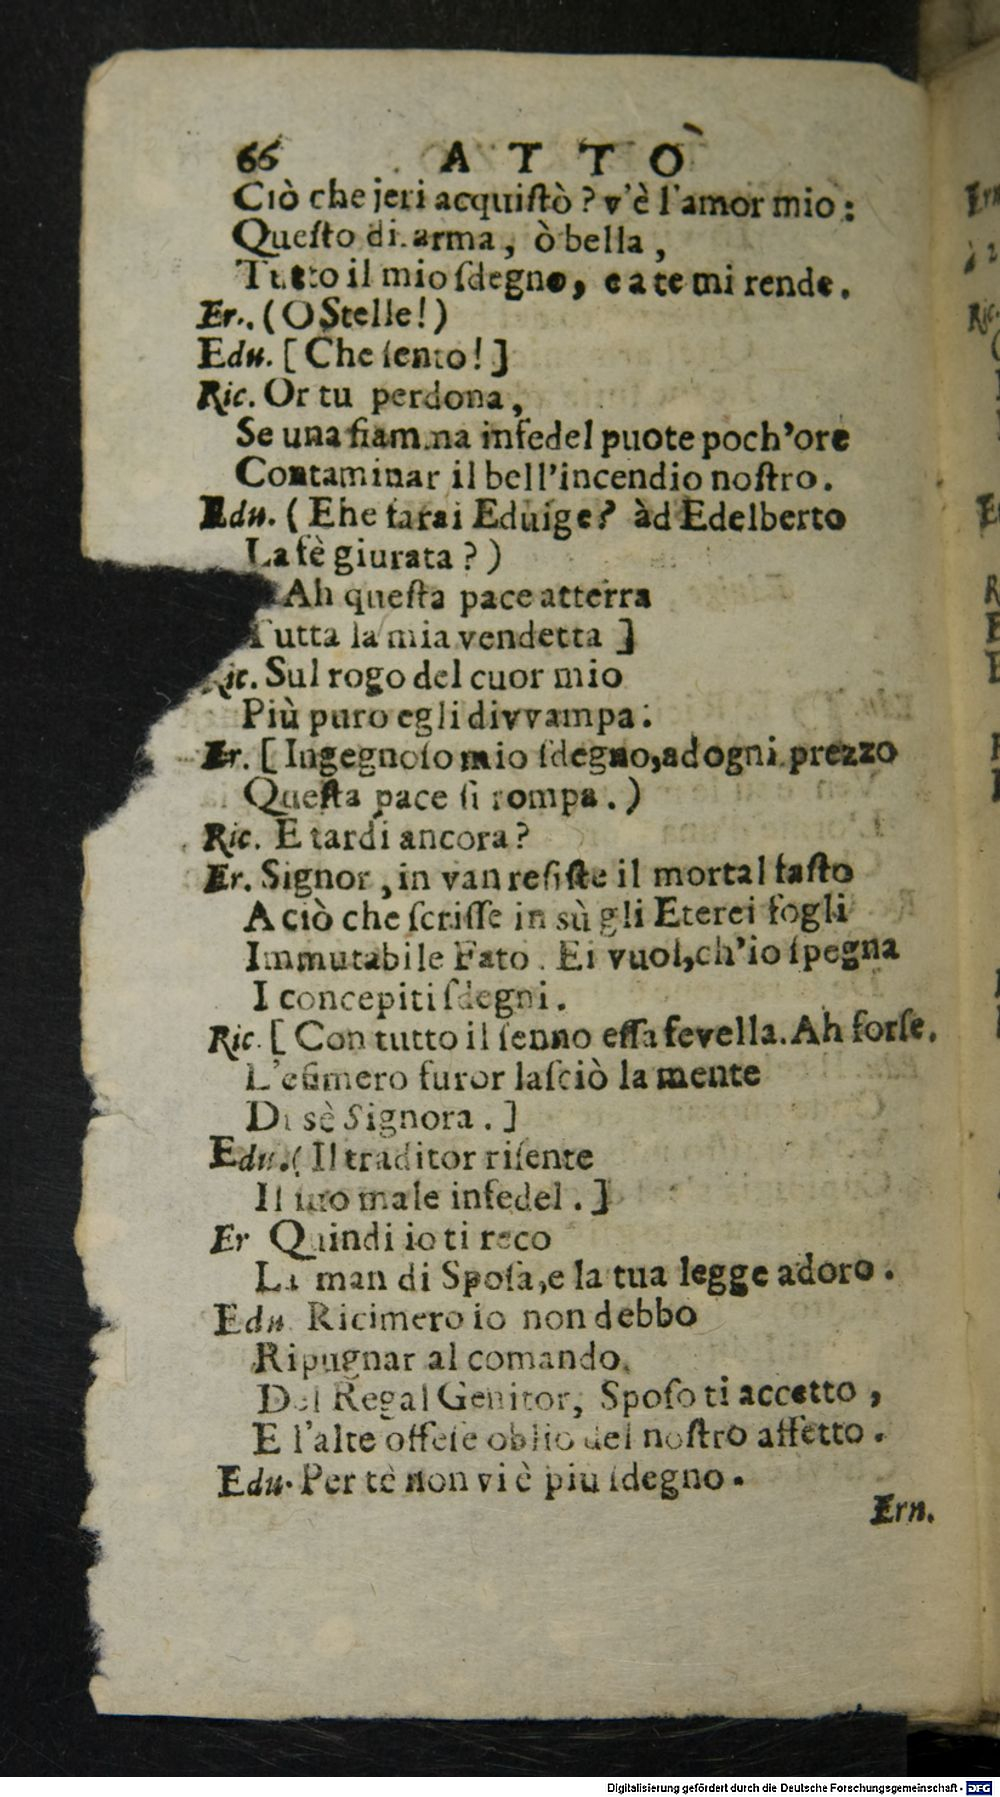 66 A T T O
Ciò che jeri acquiſtò? v'è l'amor mio:
Queſto diſarma, ò bella,
Tutto il mio ſdegno, e a te mi rende.
Er. (O Stelle!)
Edu. [Che ſento!]
Ric. Or tu perdona,
Se una fiamma infedel puote poch'ore
Contaminar il bell'incendio noſtro.
Edu. (Ehe farai Eduige? àd Edelberto
La fè giurata?)
Ah queſta pace atterra
Tutta la mia vendetta]
Ric. Sul rogo del cuor mio
Più puro egli divvampa.
Er. [Ingegnoſo mio ſdegno, ad ogni prezzo
Queſta pace ſi rompa.)
Ric. E tardi ancora?
Er. Signor, in van reſiſte il mortal faſto
A ciò che ſcriſſe in sù gli Eterei fogli
Immutabile Fato. Ei vuol, ch'io ſpegna
I concepiti ſdegni.
Ric. [Con tutto il ſenno eſſa fevella. Ah forſe.
L'efimero furor laſciò la mente
Di sè Signora.]
Edu. (Il traditor riſente
Il ſuo male infedel.]
Er Quindi io ti reco
La man di Spoſa, e la tua legge adoro.
Edu. Ricimero io non debbo
Ripugnar al comando.
Del Regal Genitor, Spoſo ti accetto,
E l'alte offeſe oblio del noſtro affetto.
Edu. Per tè non vi è più ſdegno.
Ern.
Digitalisierung gefördert durch die Deutsche Forschungsgemeinschaft - DFG